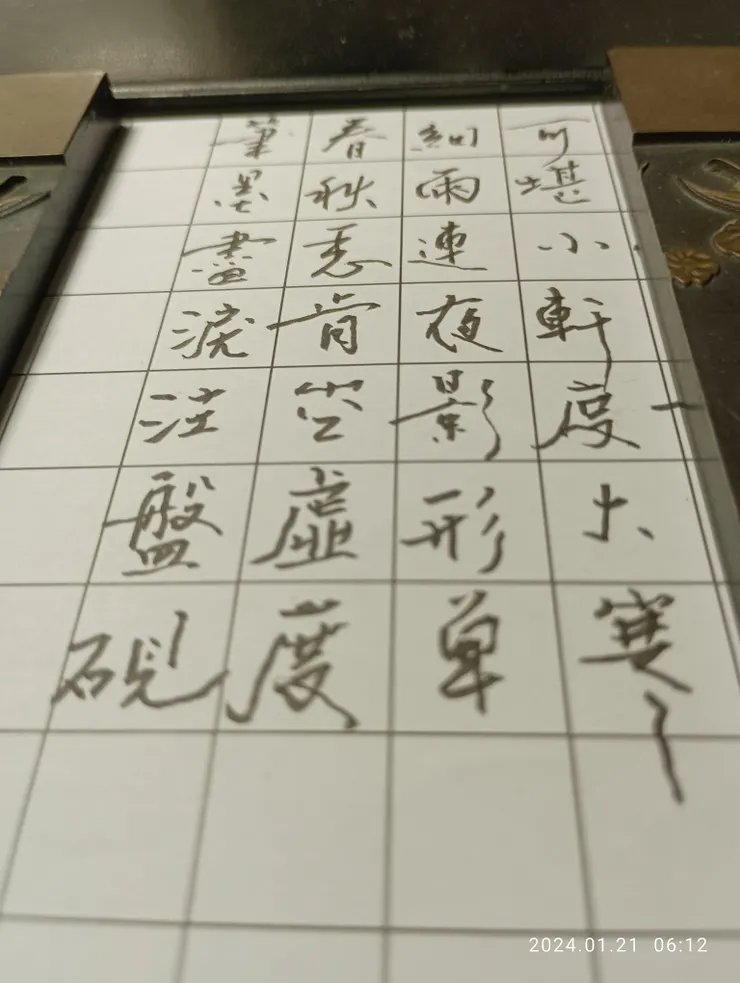 可堪小軒度大寒
細雨連夜影形单
春秋悉肯空虛度
筆墨盡淚注盤硯
2024.01.21 06:12